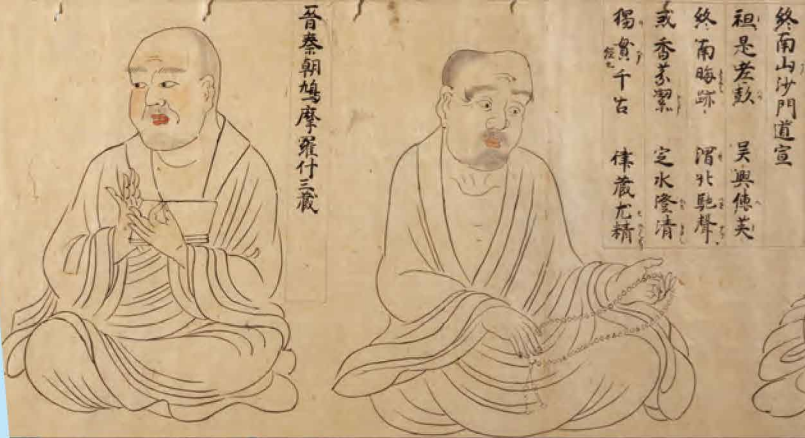 終南山沙門道宣
祖是老彭 吴興傳英
終南晦跡 渭北馳聲
戒香芬潔 定水澄清
獨貫千古 律蔵尤精
晉秦朝鳩摩羅什三蔵